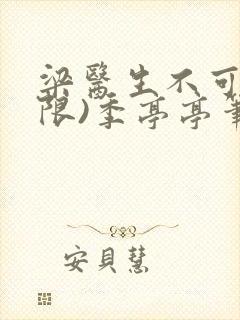 梁醫生不可
限)季亭亭筆
安貝慧